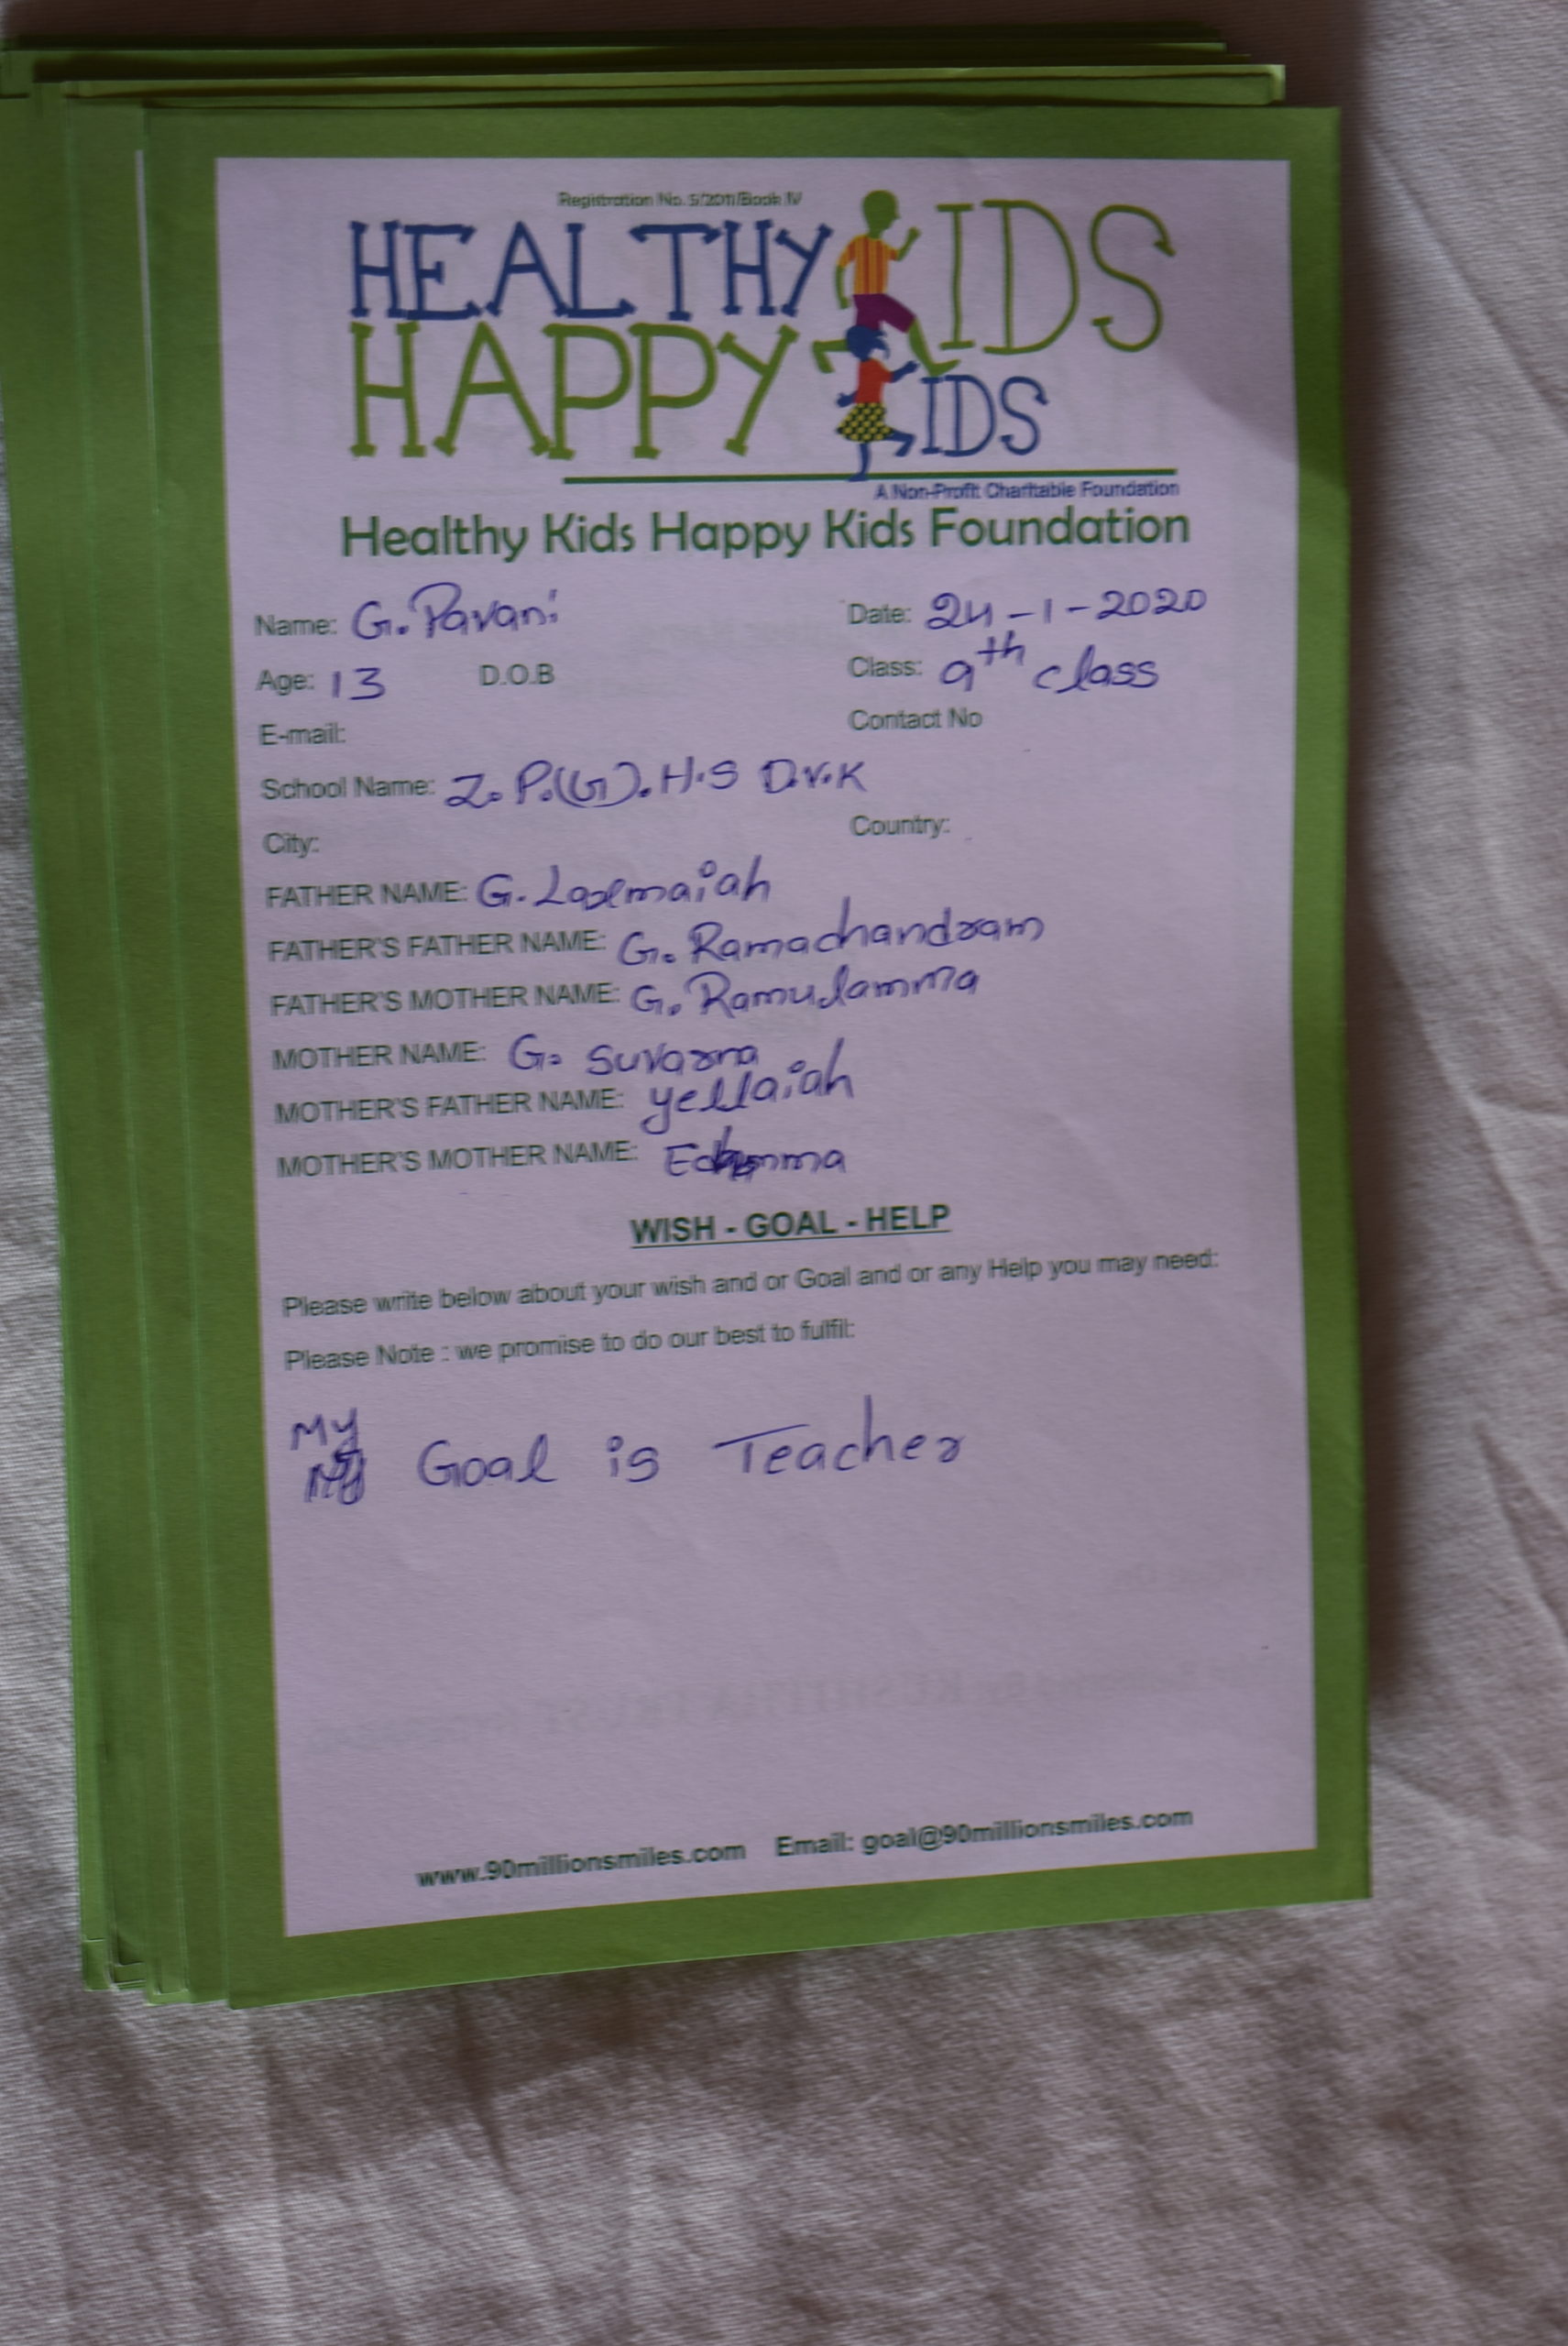 Registration No. 5/2011/Book IV
HEALTHY KIDS
HAPPY KIDS
A Non-Profit Charitable Foundation
Healthy Kids Happy Kids Foundation
Name: G. Pavani Date: 24-1-2020
Age: 13 D.O.B Class: 9th class
E-mail: Contact No
School Name: Z. P.(G). H.S D.V.K
City: Country:
FATHER NAME: G. Laxmaiah
FATHER'S FATHER NAME: G. Ramachandram
FATHER'S MOTHER NAME: G. Ramulamma
MOTHER NAME: G. Suvarna
MOTHER'S FATHER NAME: yellaiah
MOTHER'S MOTHER NAME:
WISH - GOAL - HELP
Please write below about your wish and or Goal and or any Help you may need:
Please Note : we promise to do our best to fulfil:
My Goal is Teacher
www.90millionsmiles.com Email: goal@90millionsmiles.com